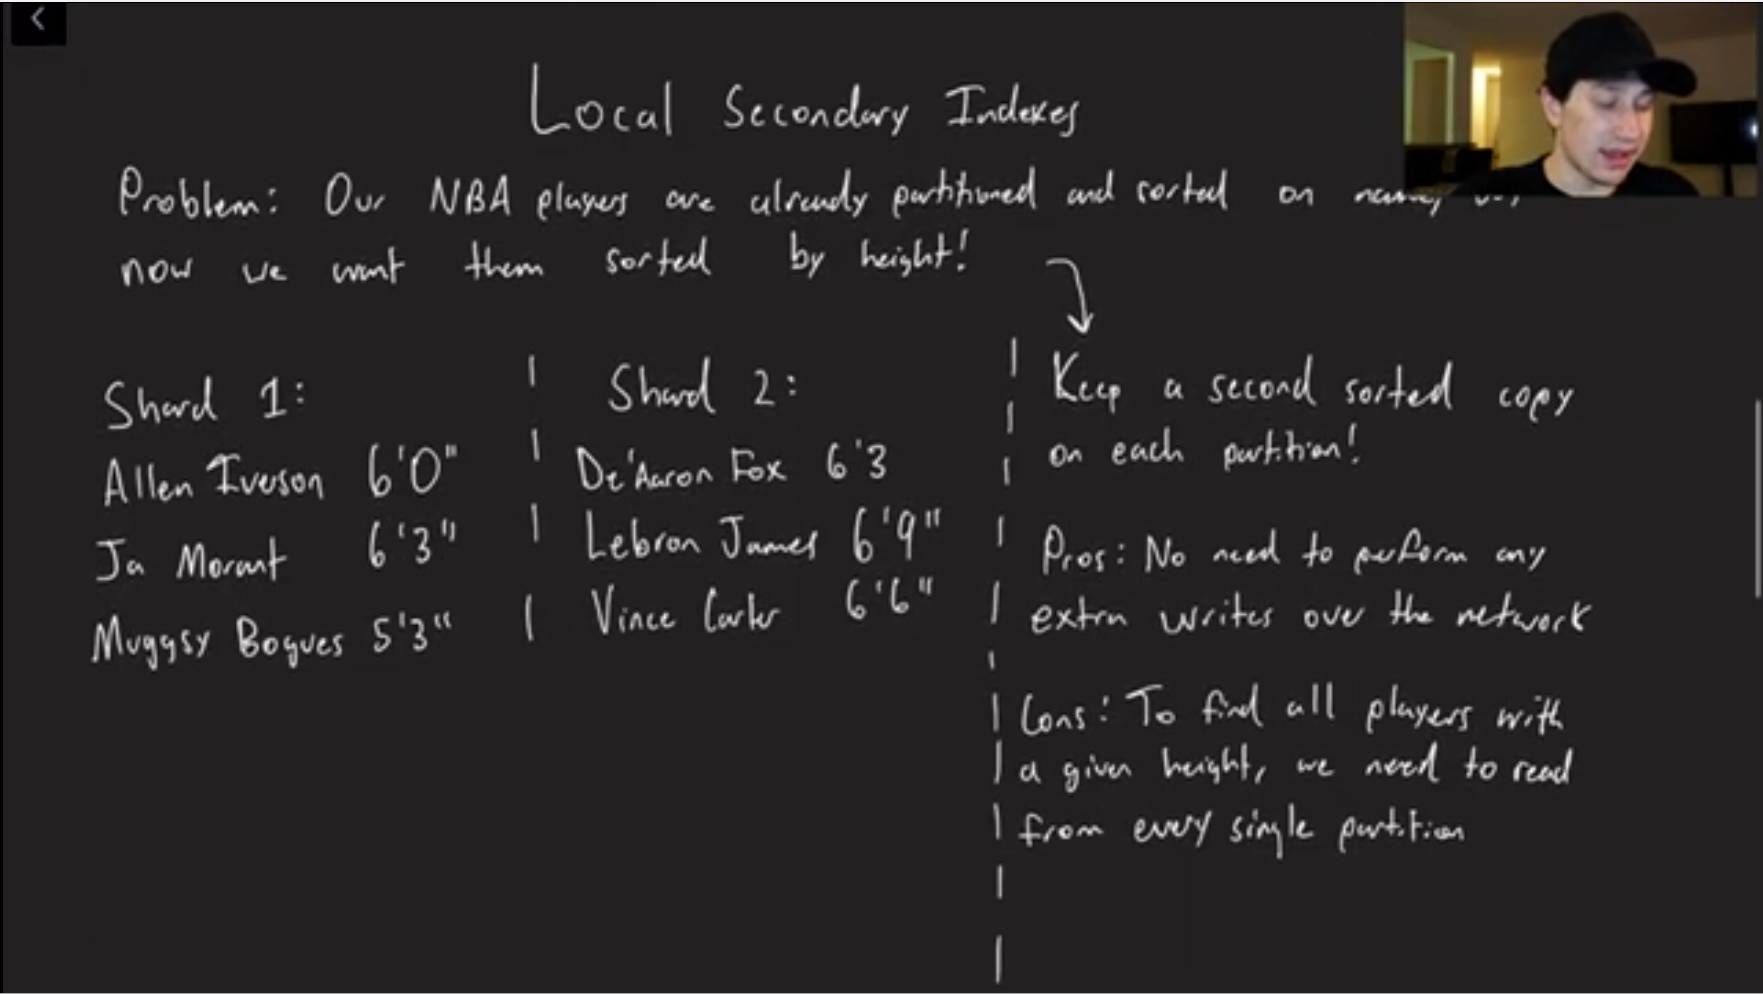 Local Secondary Indexes
Problem: Our NBA players are already partitioned and sorted on
now we want them sorted by height!
Shard 1:
Allen Iverson 6'0"
Ja Morant 6'3"
Muggsy Bogues 5'3"
Shard 2:
De'Aaron Fox 6'3
Lebron James 6'9"
Vince Carter 6'6"
Keep a second sorted copy
on each partition!
Pros: No need to perform any
extra writes over the network
Cons: To find all players with
a given height, we need to read
from every single partition